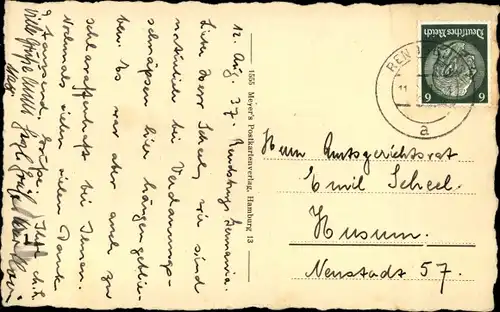 12. Aug. 37. Rendsburg Germania.
Lieber Herr Scheel, wir sind
natürlich bei Verdauungs-
schnäpsen hier hängengeblie-
ben. Es war aber auch zu
schlaraffenhaft bei Ihnen.
Nochmals vielen vielen Dank
u. tausend Grüße. Ihre
viele Grüße
4555 Meyer's Postkartenverlag, Hamburg 13
REND
a
Deutsches Reich
6 6
Herrn Amtsgerichtsrat
Emil Scheel.
Husum.
Neustadt 57.